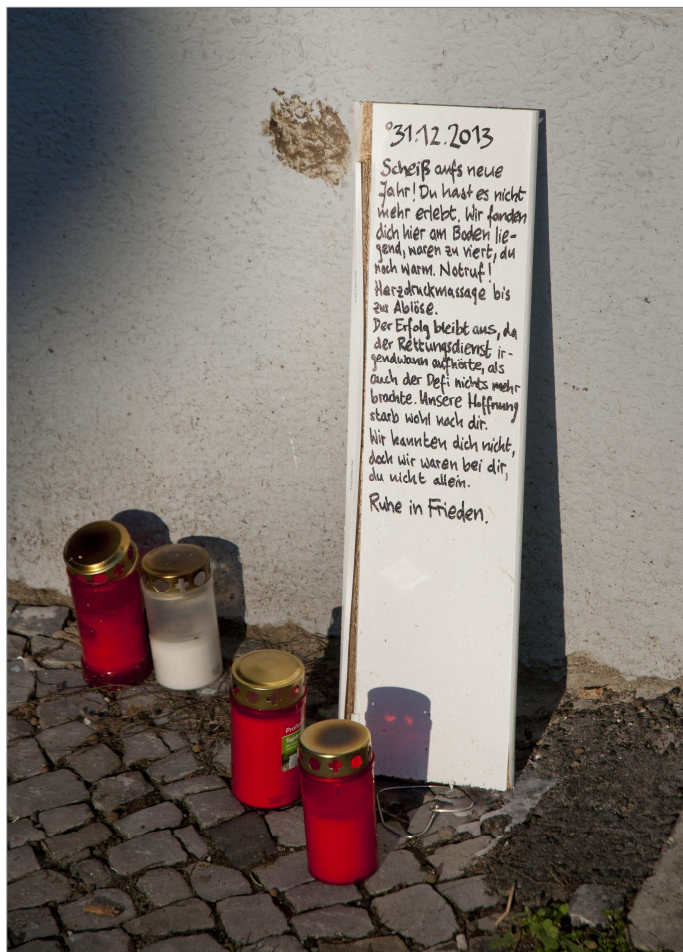 31.12.2013
Scheiß aufs neue
Jahr! Du hast es nicht
mehr erlebt. Wir fanden
dich hier am Boden lie-
gend, waren zu viert, du
noch warm. Notruf!
Herzdruckmassage bis
zur Ablöse.
Der Erfolg bleibt aus, da
der Rettungsdienst ir-
gendwann aufhörte, als
auch der Defi nichts mehr
brachte. Unsere Hoffnung
starb wohl nach dir.
Wir kannten dich nicht,
doch wir waren bei dir,
du nicht allein.
Ruhe in Frieden.